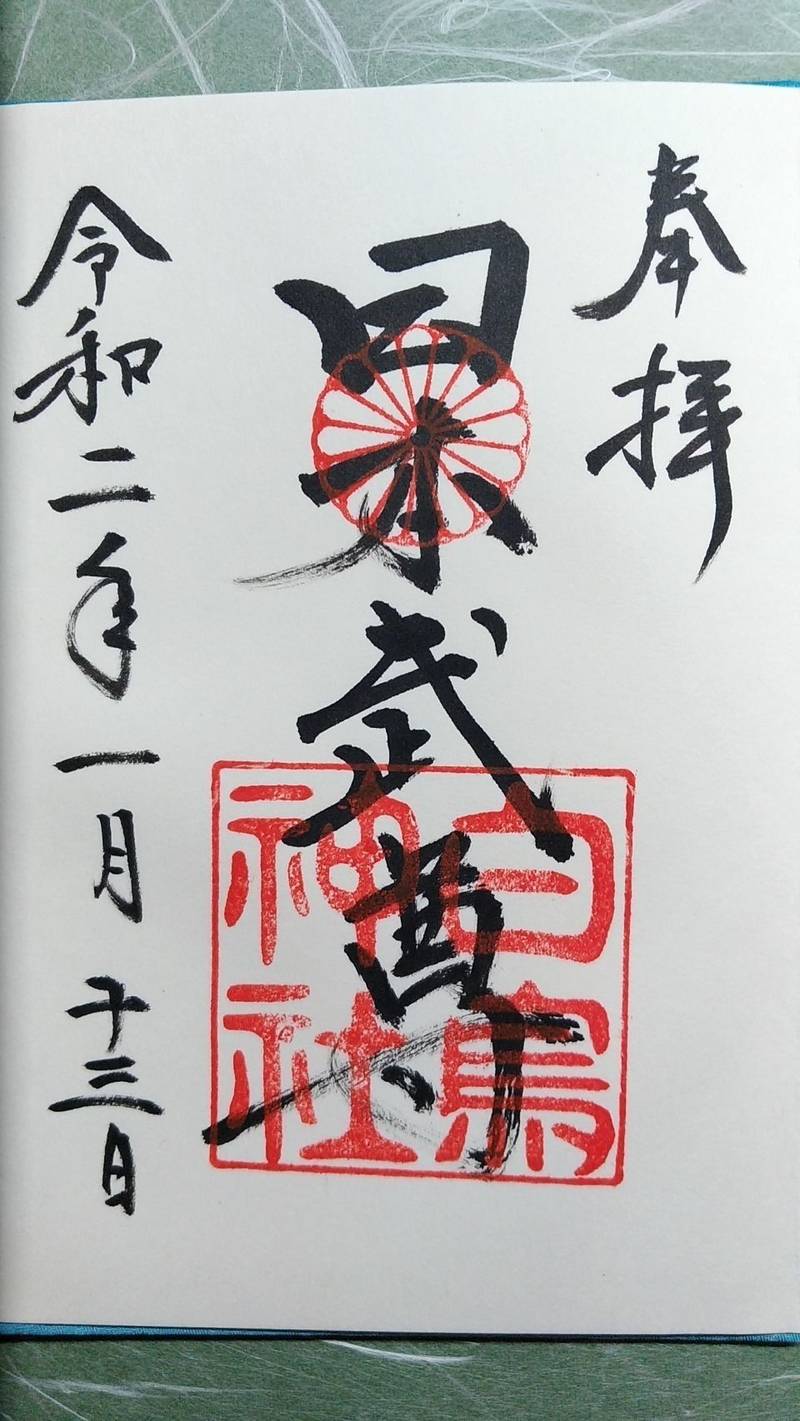 奉拝
日本武尊
白鳥
神社
令和二年一月十三日